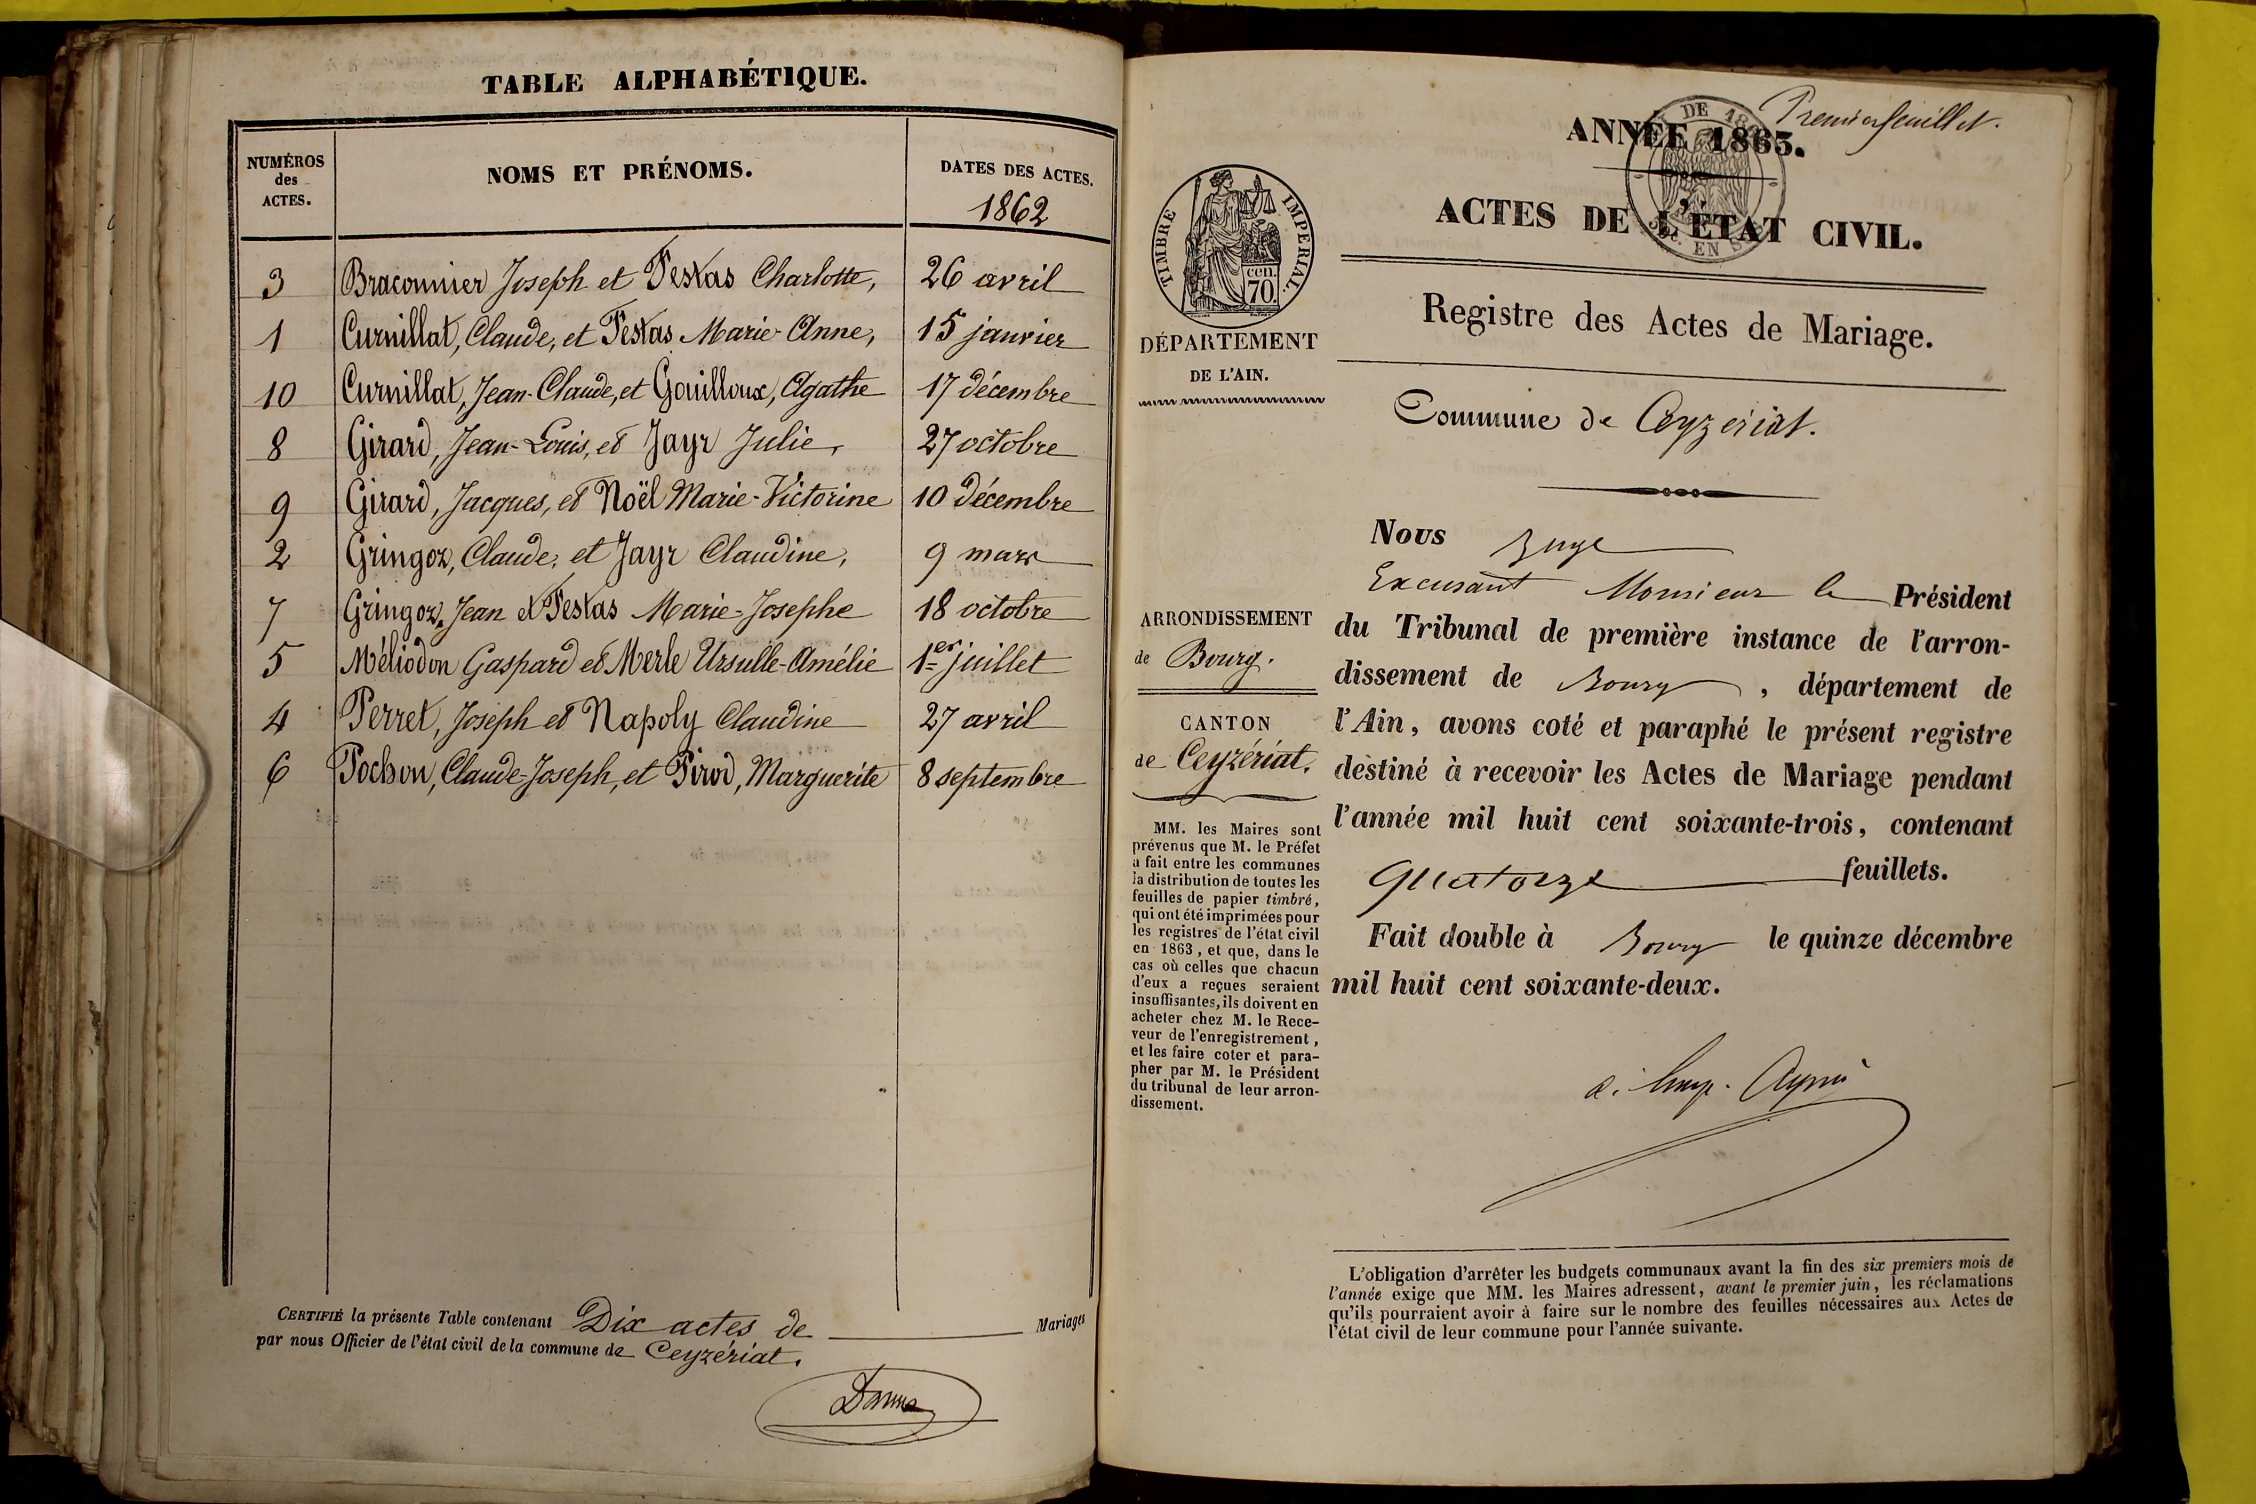 TABLE ALPHABÉTIQUE.
NUMÉROS des ACTES. NOMS ET PRÉNOMS. DATES DES ACTES.
1862
3 Braconnier Joseph et Festas Charlotte, 26 avril
1 Curnillat, Claude, et Festas Marie-Anne, 15 janvier
10 Curnillat, Jean-Claude, et Gouilloux, Agathe 17 décembre
8 Girard, Jean-Louis, et Jayr Julie, 27 octobre
9 Girard, Jacques, et Noël Marie-Victorine 10 décembre
2 Gringoz, Claude, et Jayr Claudine, 9 mars
7 Gringoz, Jean et Festas Marie-Josephe 18 octobre
5 Méliodon Gaspard et Merle Ursulle-Amélie 1er juillet
4 Perret, Joseph et Napoly Claudine 27 avril
6 Pochon, Claude-Joseph, et Pirod, Marguerite 8 septembre
CERTIFIÉ la présente Table contenant Dix actes de Mariages
par nous Officier de l'état civil de la commune de Ceyzériat.
Premier feuillet.
ANNÉE 1863.
ACTES DE L'ÉTAT CIVIL.
TIMBRE IMPÉRIAL.
cen.
70
DÉPARTEMENT
DE L'AIN.
Registre des Actes de Mariage.
Commune de Ceyzériat.
Nous Juge
Excusant Monsieur le Président
du Tribunal de première instance de l'arron-
dissement de Bourg, département de
l'Ain, avons coté et paraphé le présent registre
destiné à recevoir les Actes de Mariage pendant
l'année mil huit cent soixante-trois, contenant
quatorze feuillets.
Fait double à Bourg le quinze décembre
mil huit cent soixante-deux.
ARRONDISSEMENT
de Bourg.
CANTON
de Ceyzériat.
MM. les Maires sont
prévenus que M. le Préfet
a fait entre les communes
la distribution de toutes les
feuilles de papier timbré,
qui ont été imprimées pour
les registres de l'état civil
en 1863, et que, dans le
cas où celles que chacun
d'eux a reçues seraient
insuffisantes, ils doivent en
acheter chez M. le Rece-
veur de l'enregistrement,
et les faire coter et para-
pher par M. le Président
du tribunal de leur arron-
dissement.
L'obligation d'arrêter les budgets communaux avant la fin des six premiers mois de
l'année exige que MM. les Maires adressent, avant le premier juin, les réclamations
qu'ils pourraient avoir à faire sur le nombre des feuilles nécessaires aux Actes de
l'état civil de leur commune pour l'année suivante.